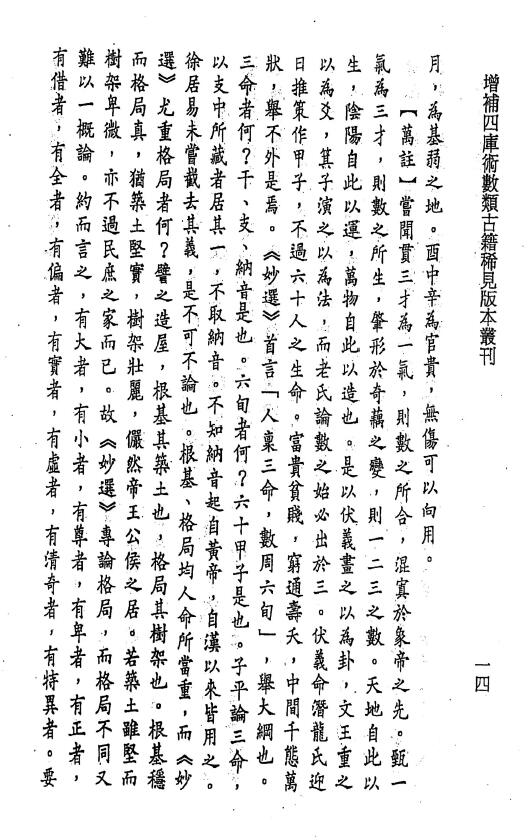 增補四庫術數類古籍稀見版本叢刊
一四
月，為基弱之地。酉中辛為官貴，無傷可以向用。
【萬註】嘗聞貫三才為一氣，則數之所合，混寘於象帝之先。甄一
氣為三才，則數之所生，肇形於奇藕之變，則一二三之數。天地自此以
生，陰陽自此以運，萬物自此以造也。是以伏羲畫之以為卦，文王重之
以為爻，箕子演之以為法，而老氏論數之始必出於三。伏羲命潛龍氏迎
日推策作甲子，不過六十人之生命。富貴貧賤，窮通壽夭，中間千態萬
狀，舉不外是焉。《妙選》首言「人稟三命，數周六旬」，舉大綱也。
三命者何？干、支、納音是也。六旬者何？六十甲子是也。子平論三命，
以支中所藏者居其一，不取納音。不知納音起自黃帝，自漢以來皆用之。
徐居易未嘗截去其義，是不可不論也。根基、格局均人命所當重，而《妙
選》尤重格局者何？譬之造屋，根基其築土也，格局其樹架也。根基穩
而格局真，猶築土堅實，樹架壯麗，儼然帝王公侯之居。若築土雖堅而
樹架卑微，亦不過民庶之家而已。故《妙選》專論格局，而格局不同又
難以一概論。約而言之，有大者，有小者，有尊者，有卑者，有正者，
有借者，有全者，有偏者，有實者，有虛者，有清奇者，有特異者。要